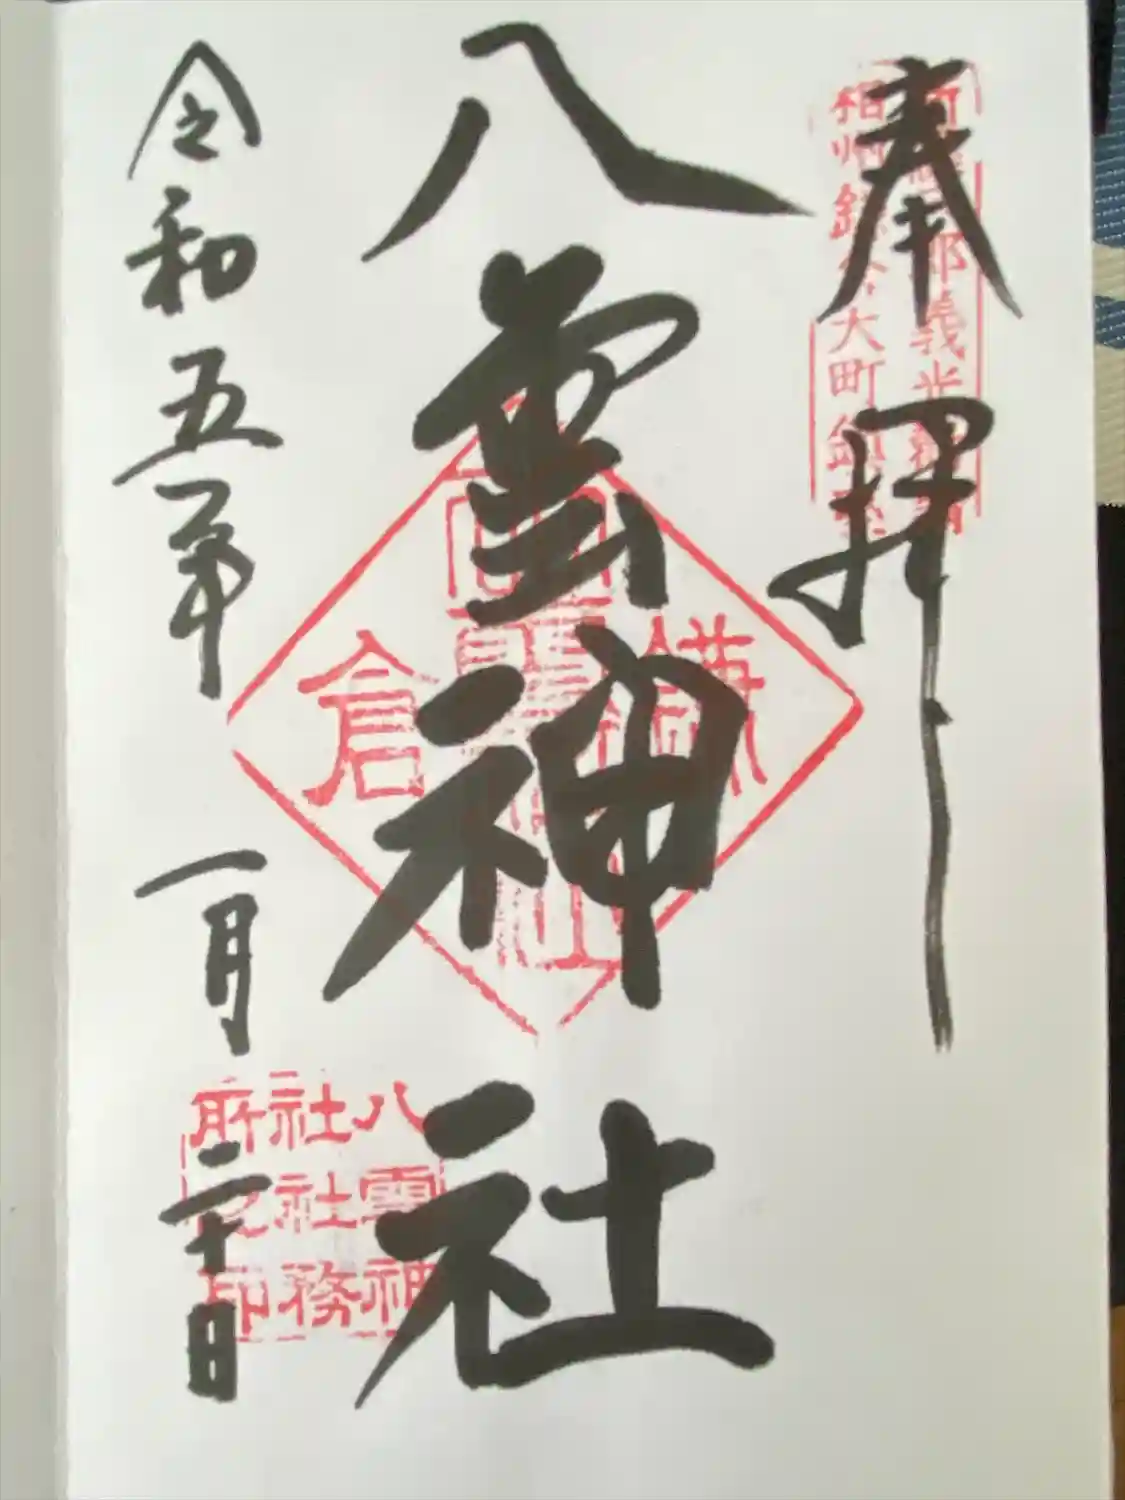 奉拝
新羅三郎義光勧請
相州鎌倉大町鎮座
八雲神社
鎌
倉
令和五年 一月 二十日
八雲神
社社務
所之印